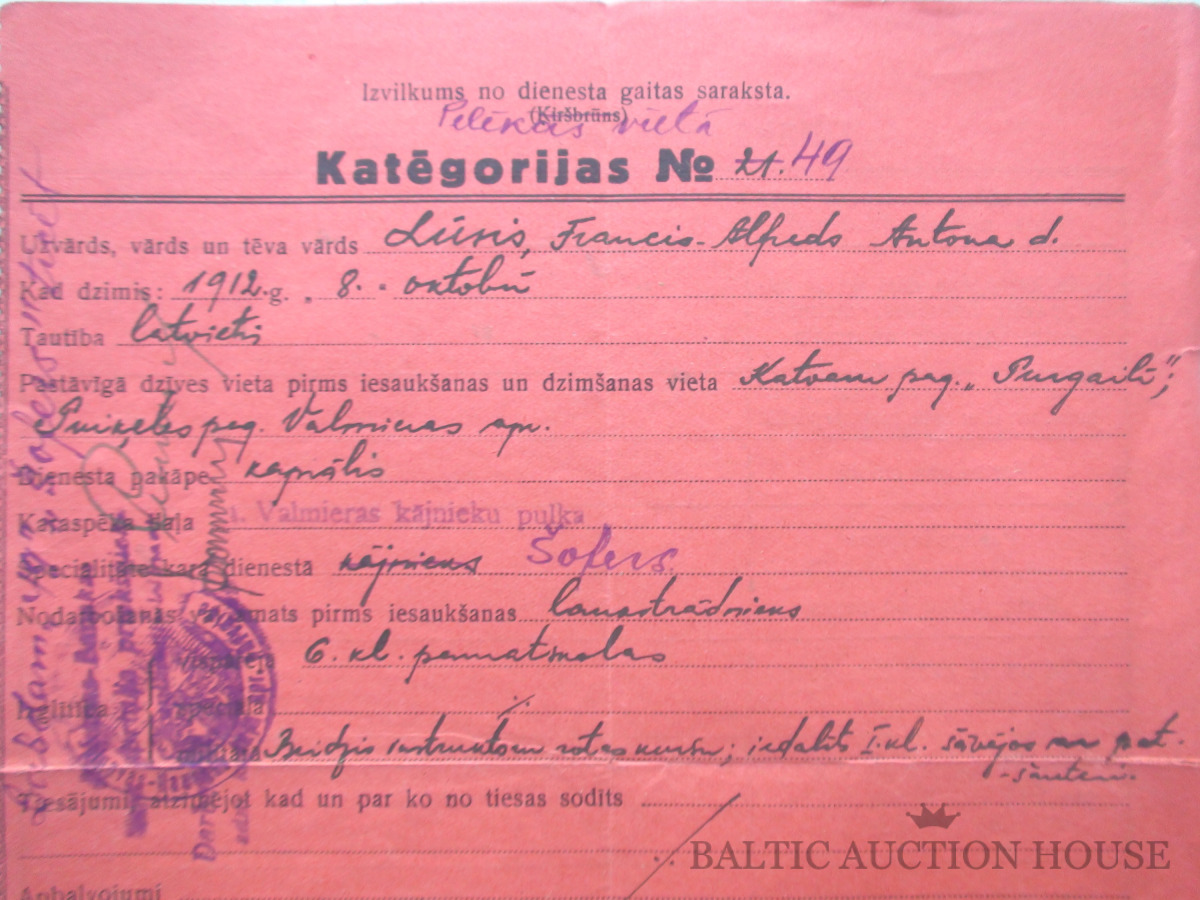 Izvilkums no dienesta gaitas saraksta.
(Ķiršbrūns)
Pelēkās vietā
Katēgorijas № 21. 49
Uzvārds, vārds un tēva vārds Lūsis, Francis-Alfreds Antona d.
Kad dzimis: 1912. g. „ 8. " oktobrī
Tautība latvietis
Pastāvīgā dzīves vieta pirms iesaukšanas un dzimšanas vieta Katvaru pag. „Purgaiļi",
Puiķeles pag. Valmieras apr.
Dienesta pakāpe kaprālis
Karaspēka daļa Valmieras kājnieku pulka
Specialitāte kara dienestā kājnieks Šofers.
Nodarbošanās vai amats pirms iesaukšanas laukstrādnieks
Izglītība
vispārējā 6. kl. pamatskolas
speciālā
militārā Beidzis instruktoru rotas kursu; iedalīts I. kl. šāvējos ar pat-
-šauteni.
Tiesājumi, atzīmējot kad un par ko no tiesas sodīts
Apbalvojumi
BALTIC AUCTION HOUSE